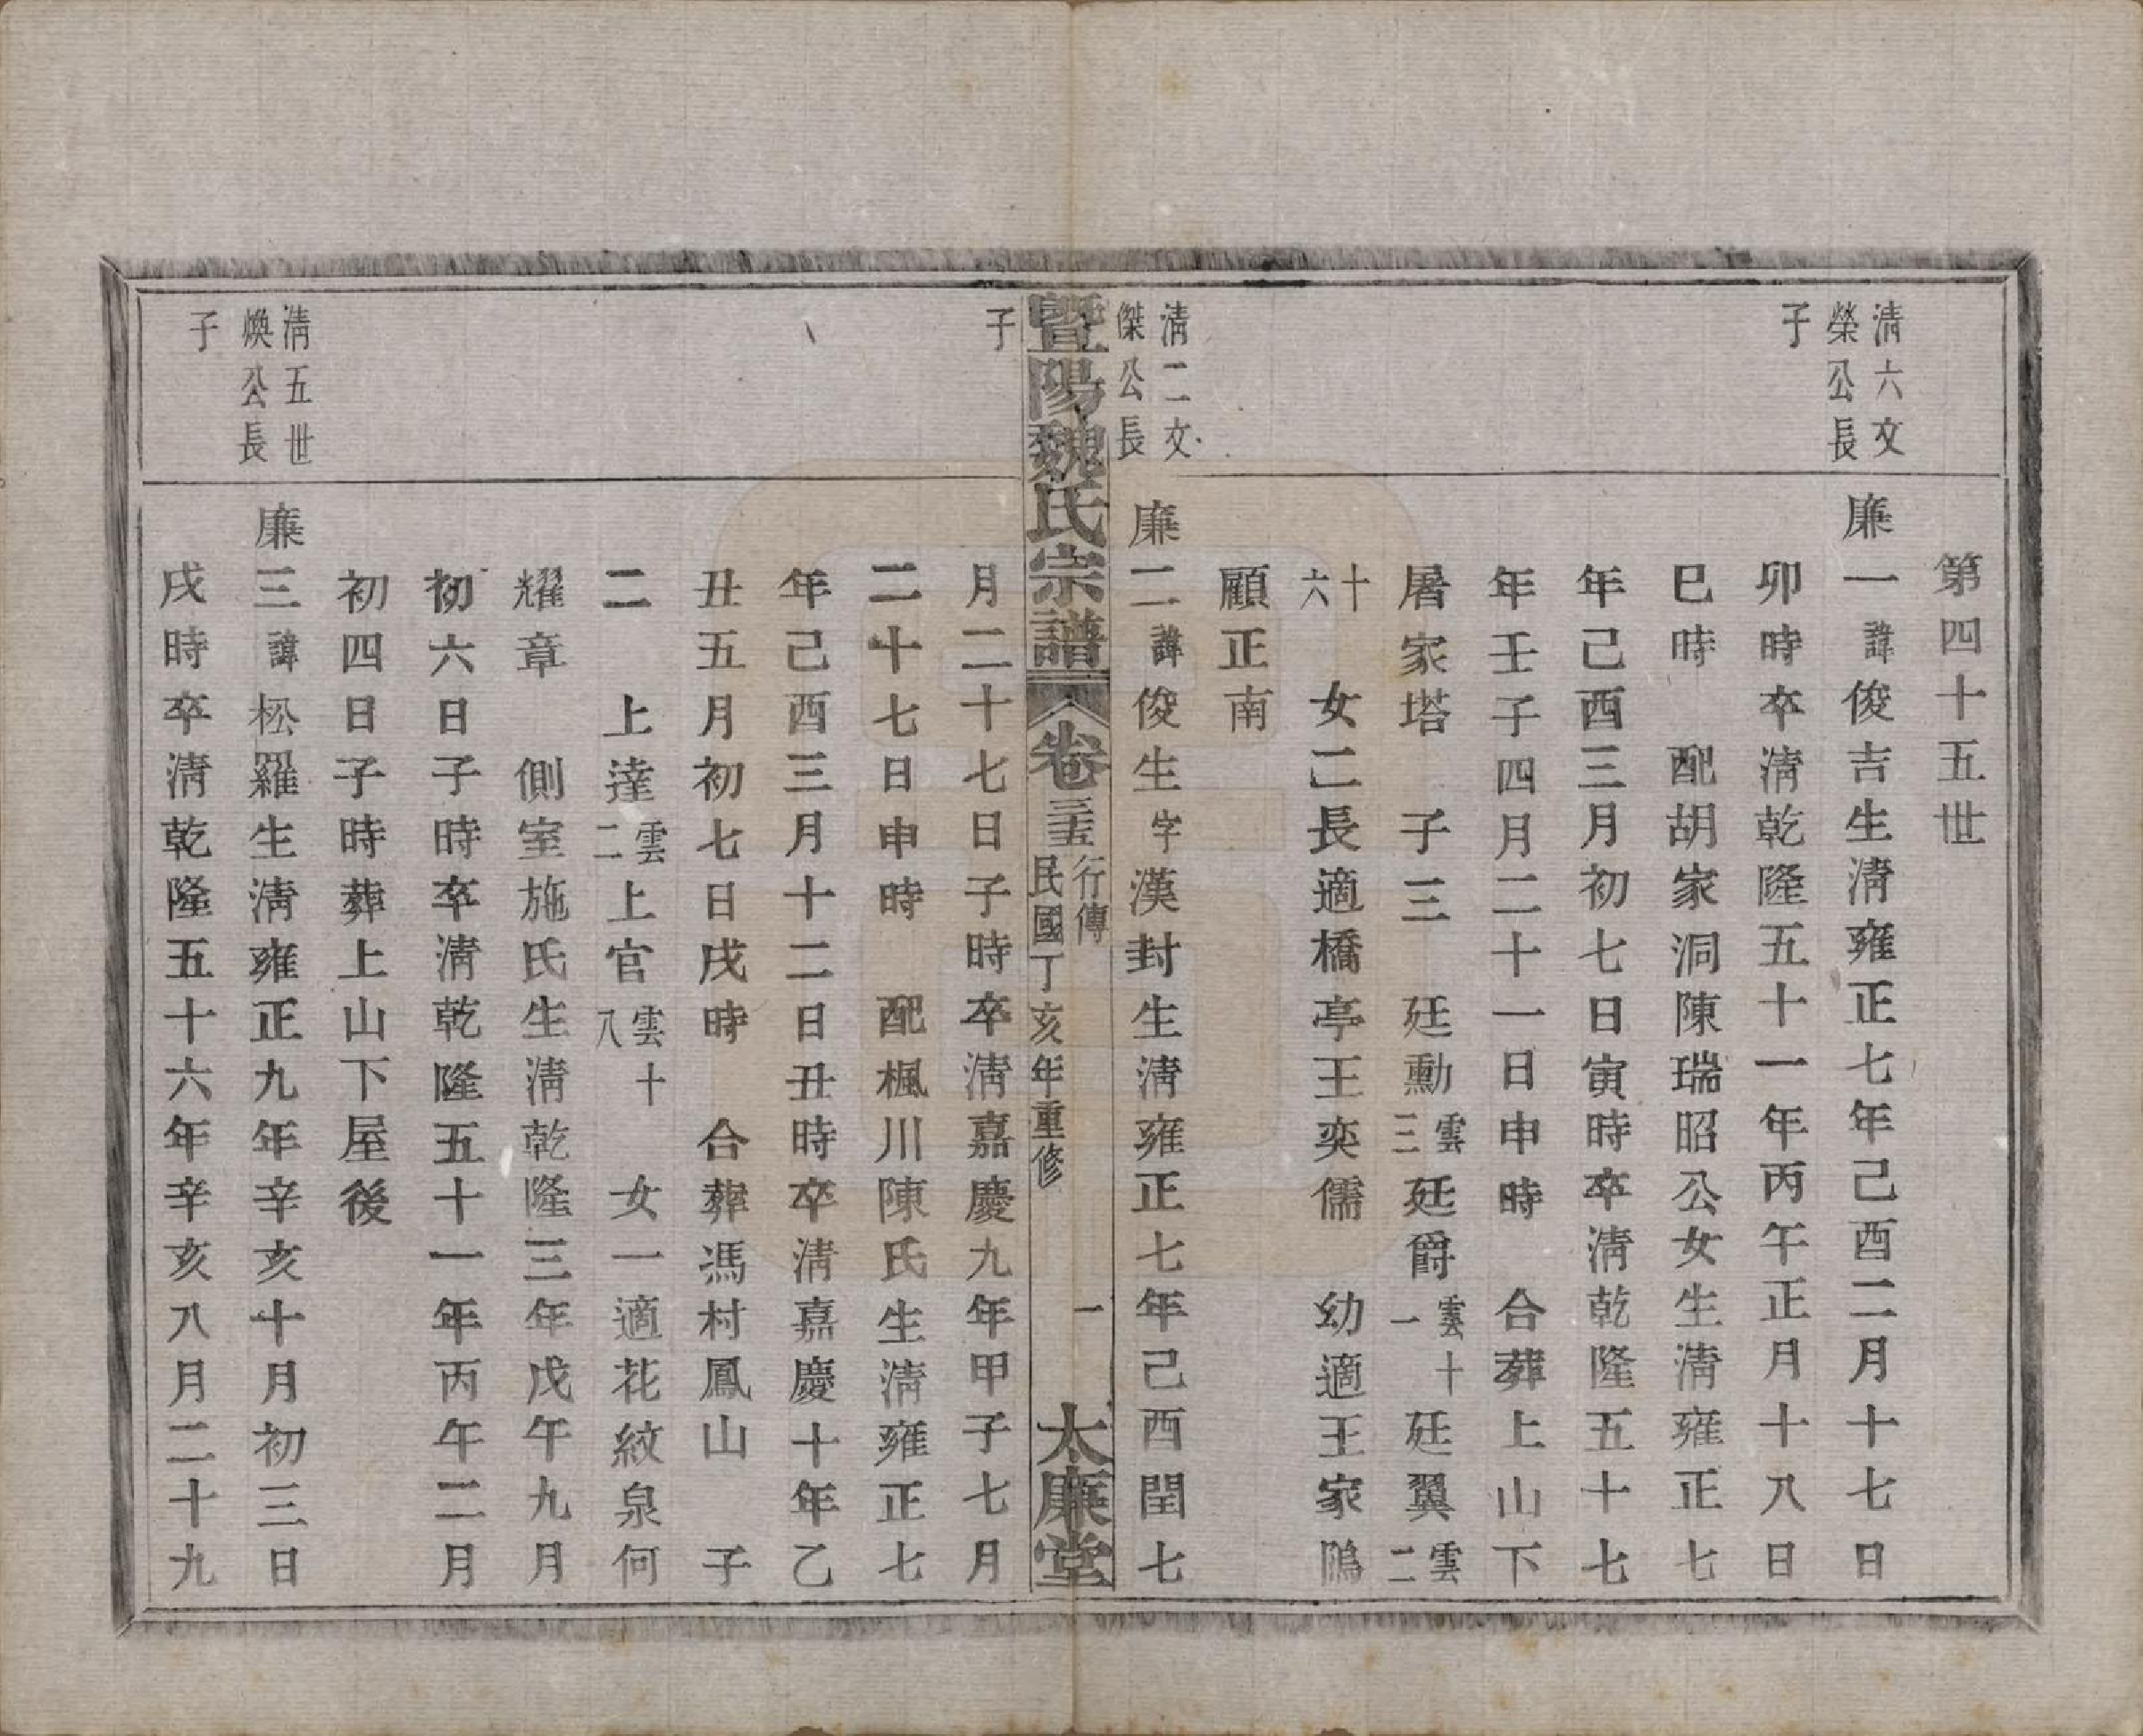 第四十五世
清六文
榮公長
子
廉一諱俊吉生清雍正七年己酉二月十七日
卯時卒清乾隆五十一年丙午正月十八日
巳時　配胡家洞陳瑞昭公女生清雍正七
年己酉三月初七日寅時卒清乾隆五十七
年壬子四月二十一日申時　合葬上山下
屠家塔　子三　廷勳雲三廷爵雲十一廷翼雲二
十六　女二長適橋亭王奕儒　幼適王家隝
顧正南
清二文
傑公長
子
廉二諱俊生字漢封生清雍正七年己酉閏七
暨陽魏氏宗譜
卷三十五
行傳
民國丁亥年重修
一
太廉堂
月二十七日子時卒清嘉慶九年甲子七月
二十七日申時　配楓川陳氏生清雍正七
年己酉三月十二日丑時卒清嘉慶十年乙
丑五月初七日戌時　合葬馮村鳳山　子
二　上達雲二上官雲十八　女一適花紋泉何
耀章　側室施氏生清乾隆三年戊午九月
初六日子時卒清乾隆五十一年丙午二月
初四日子時葬上山下屋後
清五世
煥公長
子
廉三諱松羅生清雍正九年辛亥十月初三日
戌時卒清乾隆五十六年辛亥八月二十九